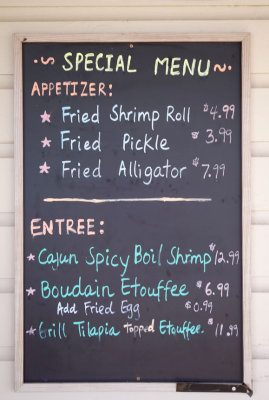 ~ SPECIAL MENU ~
APPETIZER:
★ Fried Shrimp Roll $4.99
★ Fried Pickle $3.99
★ Fried Alligator $7.99
ENTREE:
★ Cajun Spicy Boil Shrimp $12.99
★ Boudain Etouffee $6.99
Add Fried Egg $0.99
★ Grill Tilapia Topped Etouffee. $11.99